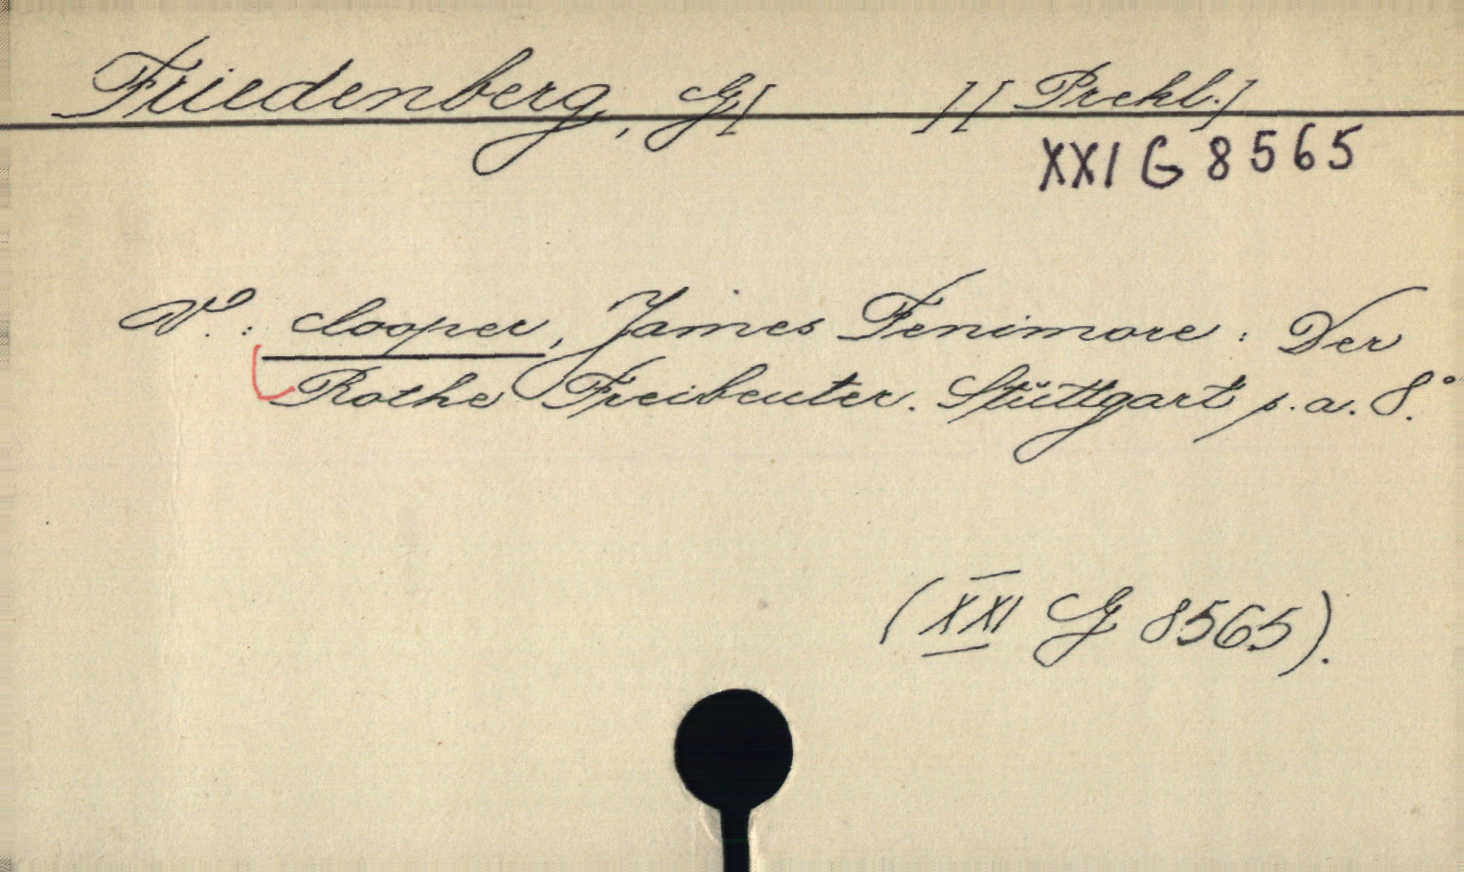 Friedenberg, G[ ][Prekl.]
XXI G 8565
V.: Cooper, James Fenimore: Der
Rothe Freibeuter. Stüttgart s.a. 8°.
(XXI G 8565).